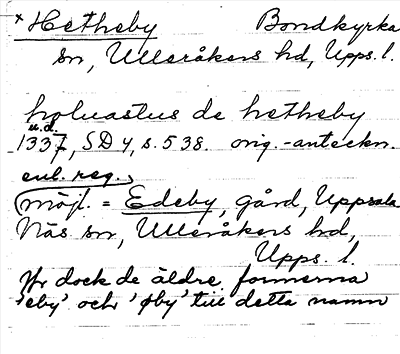 × Hetheby Bondkyrka
sn, Ulleråkers hd, Upps. l.
holuastus de hetheby
u.d.
1337, SD 4, s. 538. orig.-anteckn.
enl. reg.
möjl. = Edeby, gård, Uppsala
Näs sn, Ulleråkers hd,
Upps. l.
Jfr dock de äldre formerna
'eby' och 'øby' till detta namn